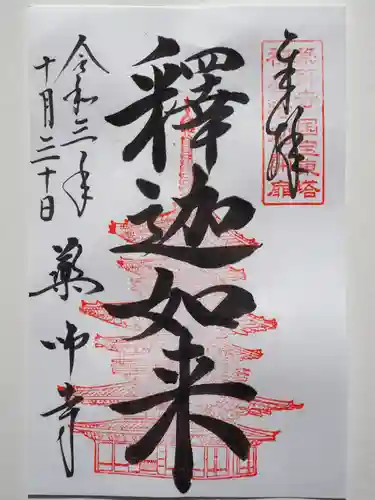 奉拝
薬師寺国宝東塔
釋迦如来
令和三年
十月三十日
薬師寺